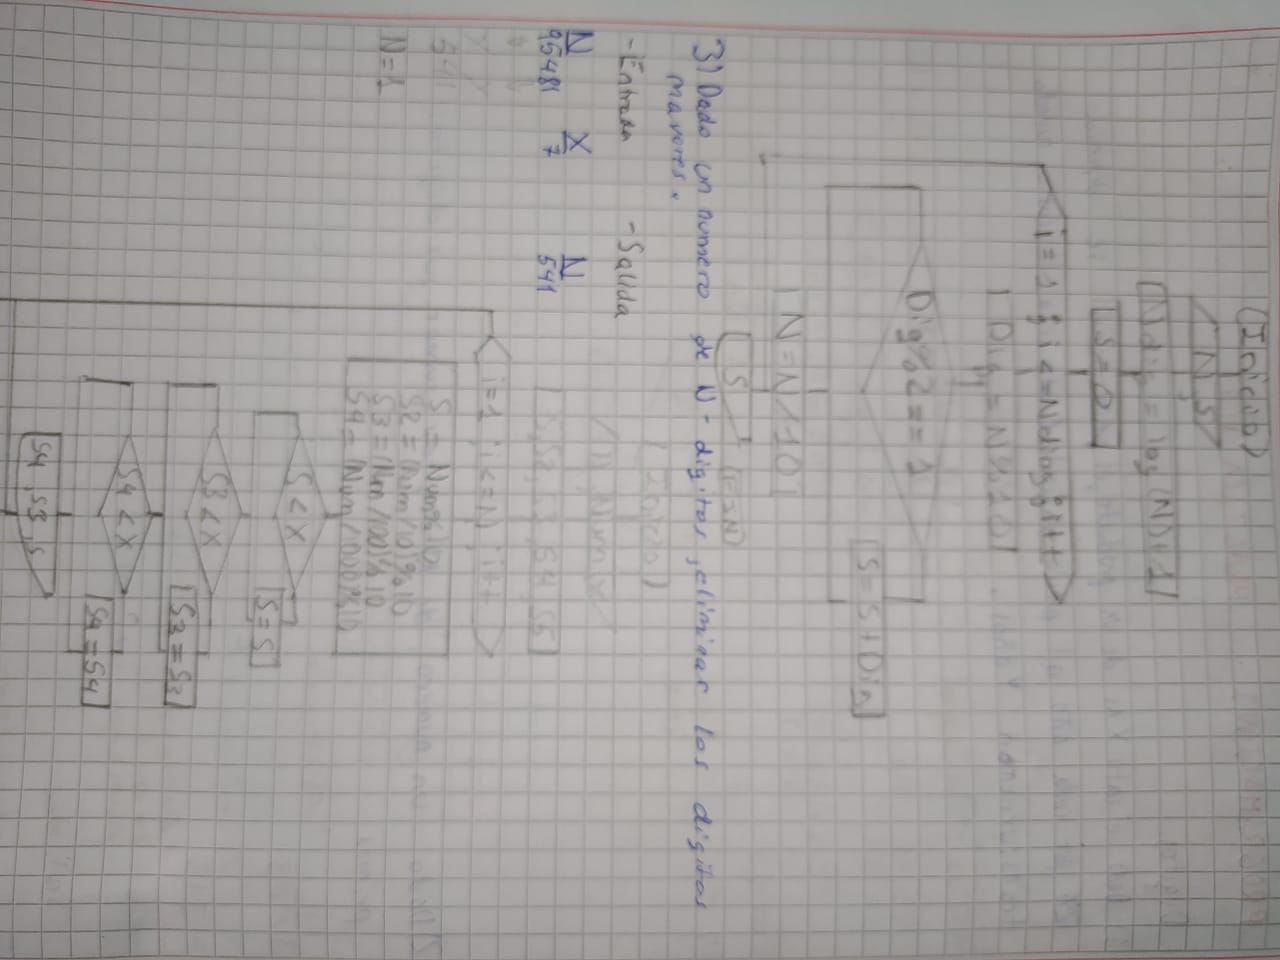 (Inicio)
N, S
Ndig = log(N)+1
S = 0
i = 1 ; i <= Ndig ; i++
Dig = N%10
Dig%2 == 1
S = S+Dig
N = N/10
S
(FIN)
3) Dado un numero de N-digitos, eliminar los digitos
mayores.
-Entrada -Salida
N X N
95481 7 541
(Inicio)
N, Num, X
S, S2, S3, S4, S5
i=1 ; i<=N ; i++
N=1
S = Num%10
S2 = (Num/10)%10
S3 = (Num/100)%10
S4 = (Num/1000)%10
S < X
S=S
S3 < X
S3=S3
S4 < X
S4=S4
S4, S3, S